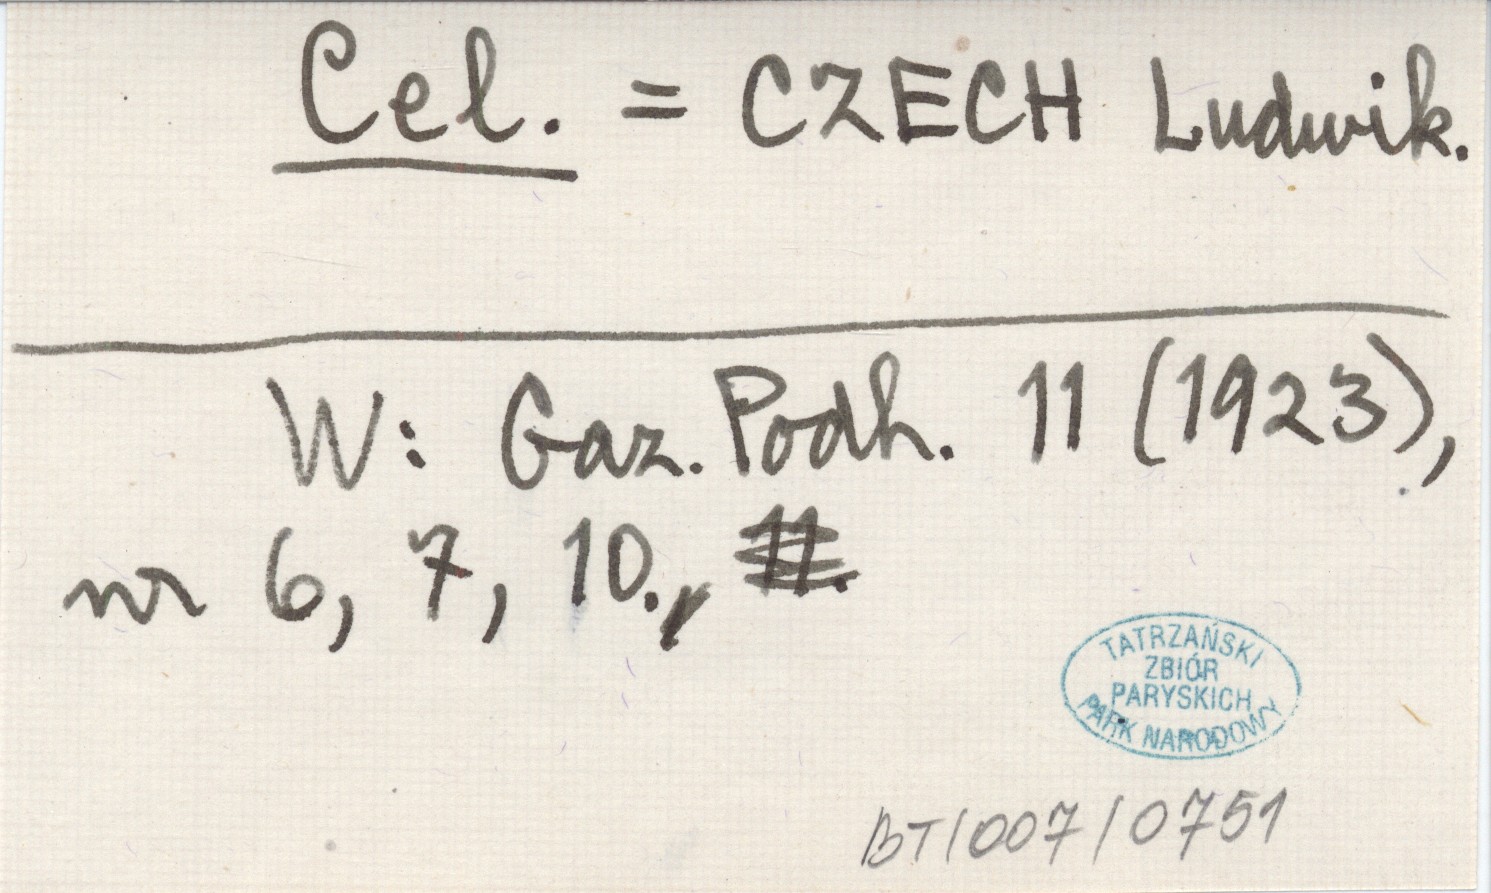 Cel. = CZECH Ludwik.
W: Gaz. Podh. 11 (1923),
nr 6, 7, 10., 11.
TATRZAŃSKI
ZBIÓR
PARYSKICH
PARK NARODOWY
BT/007/0751